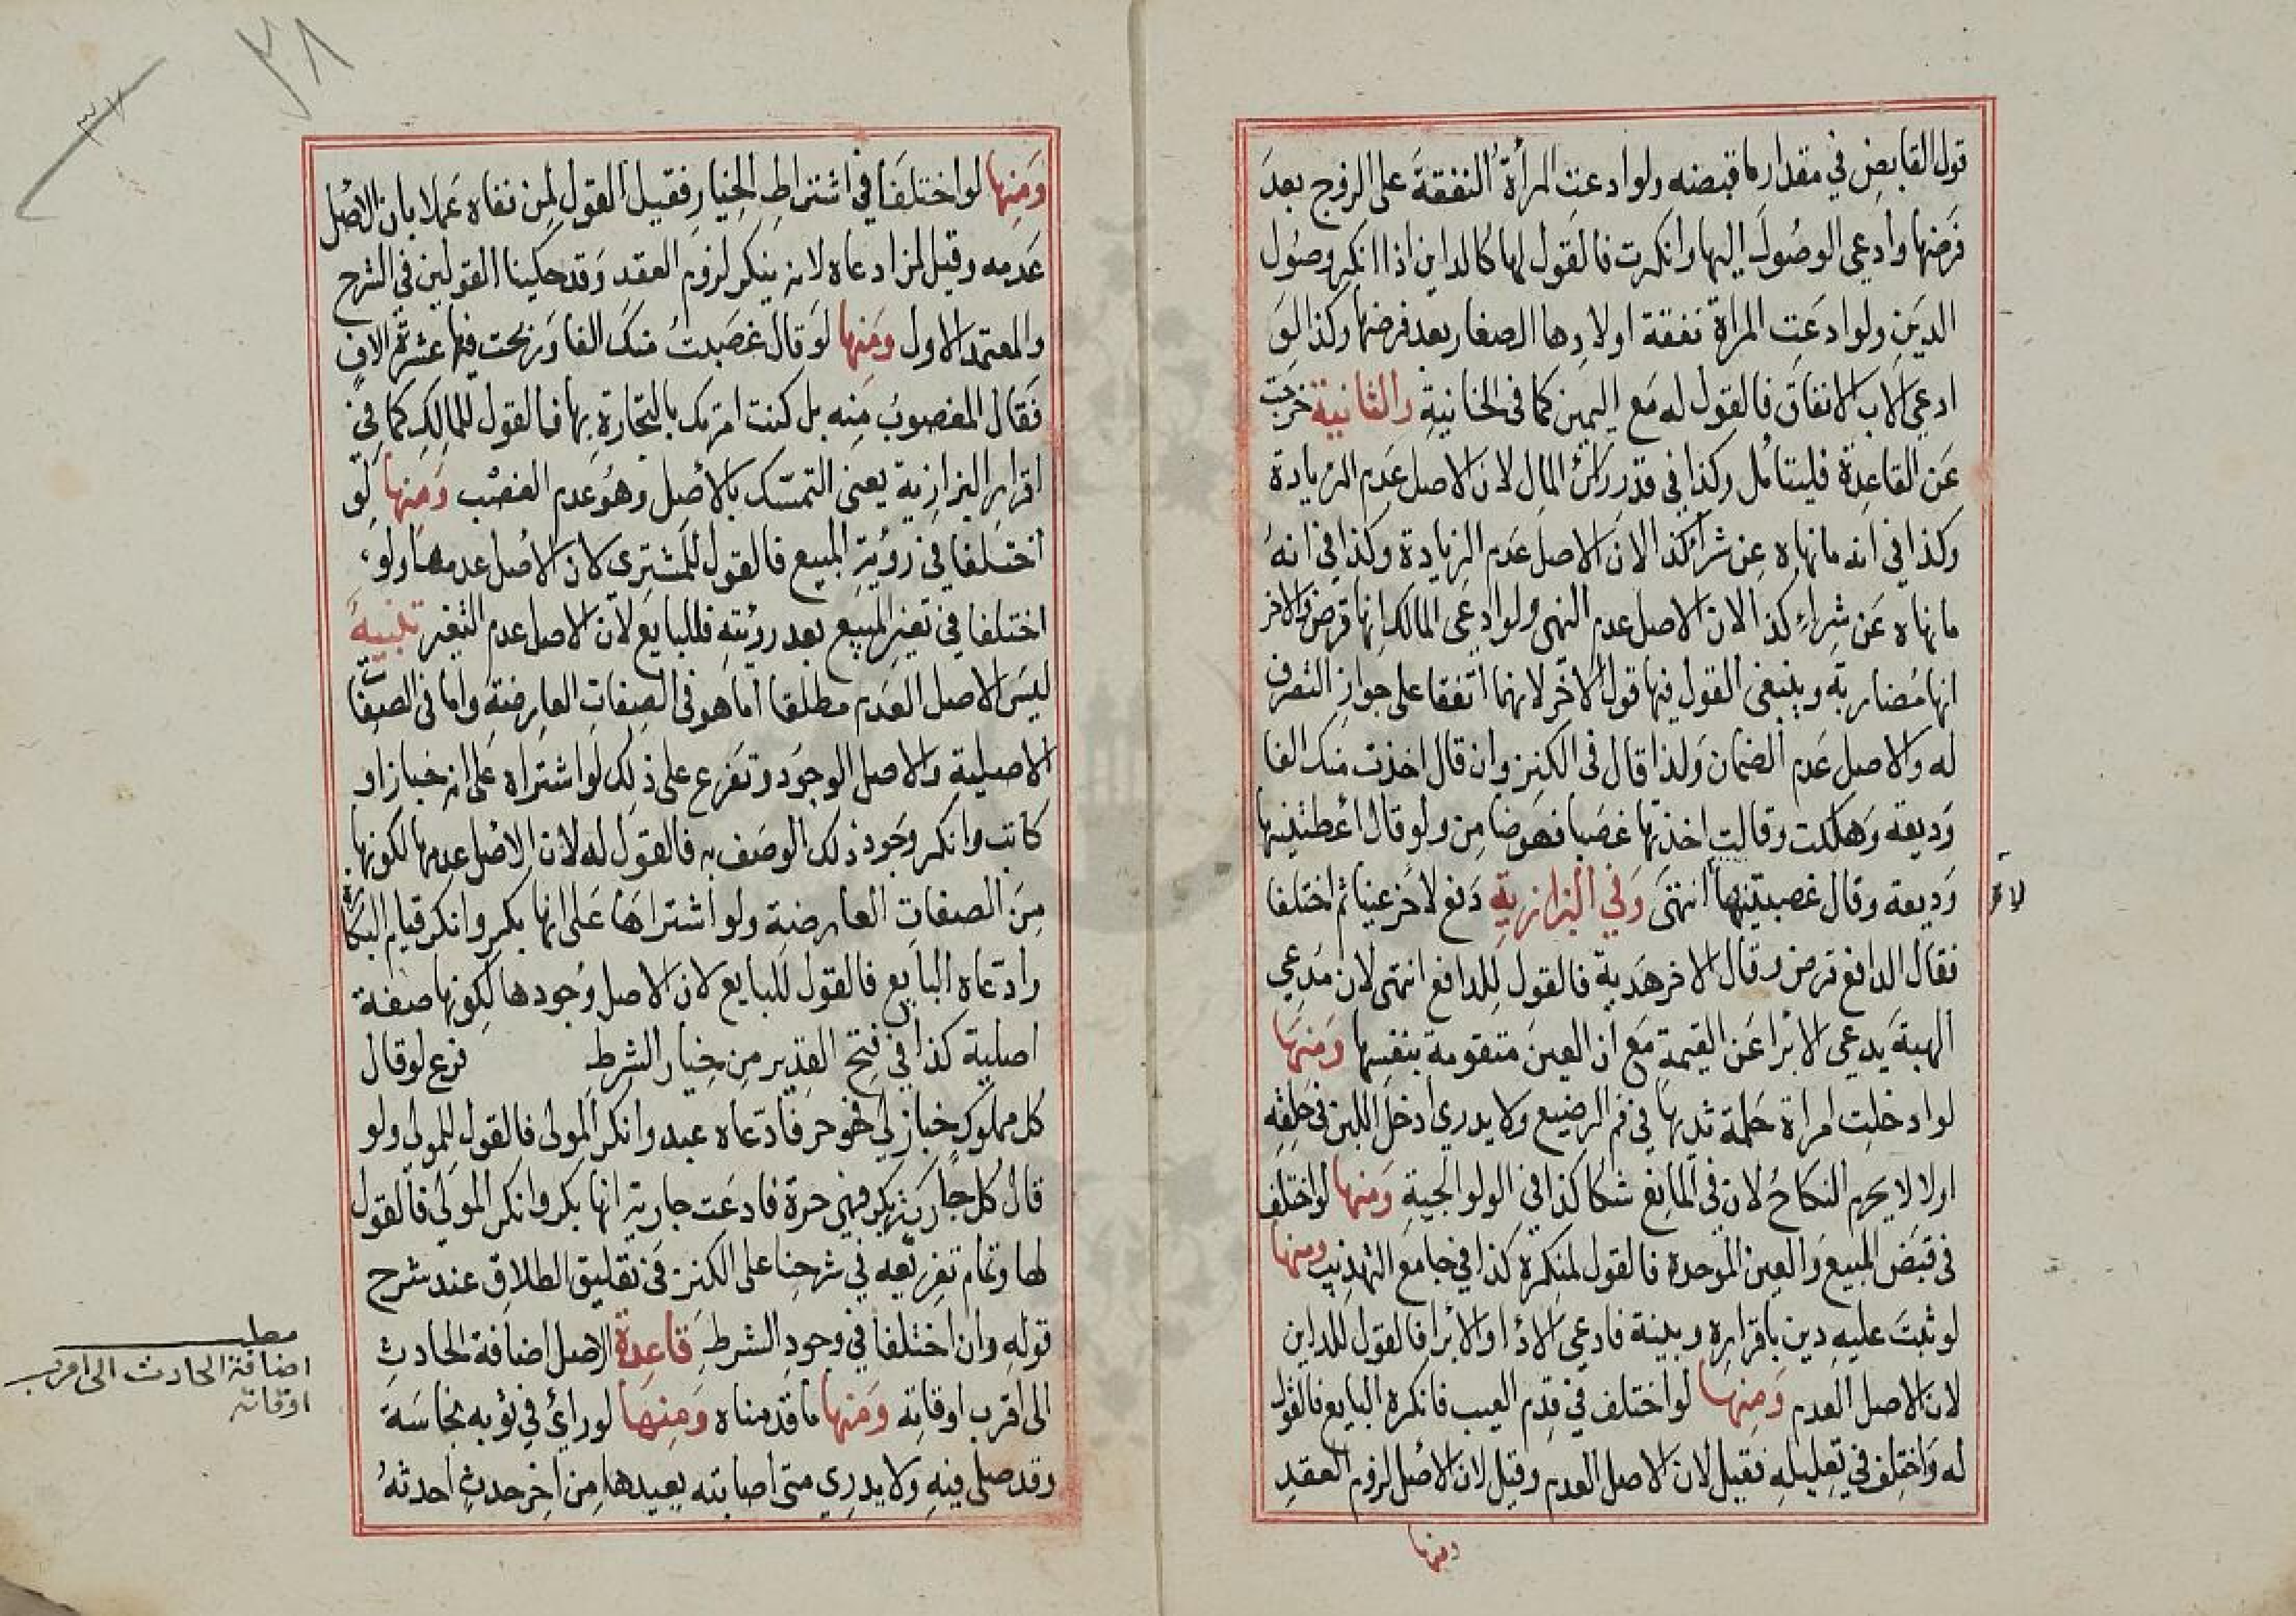 قول القابض في مقدار ما قبضه ولو ادعت المرأة النفقة على الزوج بعد
فرضها وادعى الوصول اليها وانكرت فالقول لها كالداين اذا انكر وصول
الدين ولو ادعت المراة نفقة اولادها الصغار بعد فرضها وكذا لو
ادعى الاب الانفاق فالقول له مع اليمين كما في الخانية والثانية خرجت
عن القاعدة فليتامل وكذا في قدر رأس المال لان الاصل عدم الزيادة
وكذا في انه مانهاه عن شراء كذا لان الاصل عدم الزيادة وكذا في انه
مانهاه عن شراء كذا لان الاصل عدم النهى ولو ادعى المالك انها قرض والاخر
انها مضاربة وينبغى القول فيها قول الاخر لانهما اتفقا على جواز التصرف
له والاصل عدم الضمان ولذا قال في الكنز وان قال اخذت منك الفا
وديعة وهلكت وقالت اخذتها غصبا فهو ضامن ولو قال اعطيتنيها
وديعة وقال غصبتنيها انتهى وفي البزازية دفع لاخر عينا ثم اختلفا
فقال الدافع قرض وقال الاخر هدية فالقول للدافع انتهى لان مدعي
الهبة يدعى الابرا عن القيمة مع ان العين متقومة بنفسها ومنها
لو ادخلت امراة حلمة ثديها في فم الرضيع ولا يدري ادخل اللبن في حلقه
اولا لا يحرم النكاح لان في المانع شكا كذا في الولوالجية ومنها لو اختلفا
في قبض المبيع والعين الموحدة فالقول لمنكره كذا في جامع التهذيب ومنها
لو ثبت عليه دين باقراره وبينة فادعى الادا او الابرا فالقول للداين
لان الاصل العدم ومنها لو اختلف في قدم العيب فانكره البايع فالقول
له واختلف في تعليله فقيل لان الاصل العدم وقيل لان الاصل لزوم العقد
ومنها
٣٨
٣٧
ومنها لو اختلفا في اشتراط الخيار فقيل القول لمن نفاه عملا بان الاصل
عدمه وقيل لمن ادعاه لانه ينكر لزوم العقد وقد حكينا القولين في الشرح
والمعتمد الاول ومنها لو قال غصبت منك الفا وربحت فيها عشرة الاف
فقال المغصوب منه بل كنت امرتك بالتجارة بها فالقول للمالك كما في
اقرار البزازية يعنى التمسك بالاصل وهو عدم الغصب ومنها لو
اختلفا في رؤية المبيع فالقول للمشترى لان الاصل عدمها ولو
اختلفا في تغير المبيع بعد رؤيته فللبايع لان الاصل عدم التغير تنبيه
ليس الاصل العدم مطلقا اما هو في الصفات العارضة واما في الصفات
الاصلية والاصل الوجود وتفرع على ذلك لو اشتراه على انه خباز او
كاتب وانكر وجود ذلك الوصف به فالقول له لان الاصل عدمها لكونها
من الصفات العارضة ولو اشتراها على انها بكر وانكر قيام البكارة
وادعاه البايع فالقول للبايع لان الاصل وجودها لكونها صفة
اصلية كذا في فتح القدير من خيار الشرط فرع لو قال
كل مملوك خباز لي فهو حر فادعاه عبد وانكر المولى فالقول للمولى ولو
قال كل جارية بكر فهي حرة فادعت جارية انها بكر وانكر المولى فالقول
لها وتمام تفريعه في شرحنا على الكنز في تعليق الطلاق عند شرح
قوله وان اختلفا في وجود الشرط قاعدة الاصل اضافة الحادث
الى اقرب اوقاته ومنها ما قدمناه ومنها لو رأى في ثوبه نجاسة
وقد صلى فيه ولا يدري متى اصابته يعيدها من اخر حدث احدثه
مطلب
اضافة الحادث الى اقرب
اوقاته